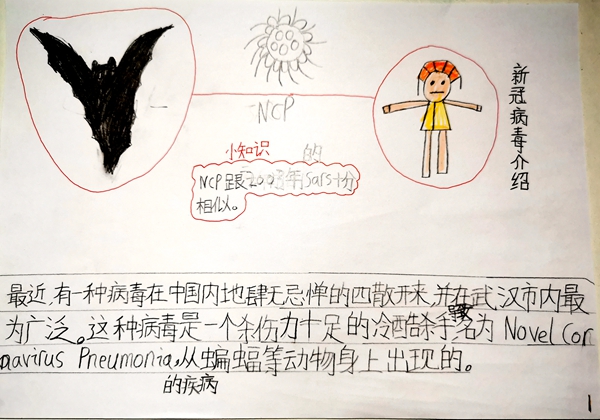 新冠病毒介绍
NCP
小知识
的
NCP跟2003年Sars十分
相似。
最近,有一种病毒在中国内地肆无忌惮的四散开来,并在武汉市内最
为广泛。这种病毒是一个杀伤力十足的冷酷杀手,名为 Novel Cor
navirus Pneumonia,从蝙蝠等动物身上出现的。
的疾病
1